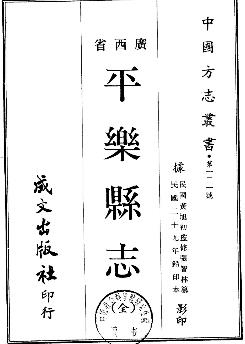 中國方志叢書・第一二一號
據
民國黃旭初監修張智林纂
民國二十九年鉛印本
影印
廣西省
平樂縣志
成文出版社印行
全